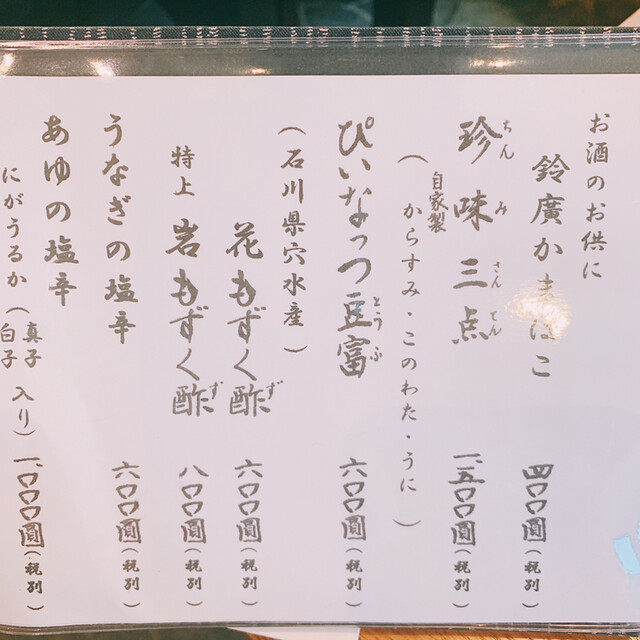 お酒のお供に
鈴廣かまぼこ 四〇〇圓(税別)
珍味三点 一、五〇〇圓(税別)
ちんみさんてん
(自家製からすみ・このわた・うに)
ぴぃなっつ豆富 六〇〇圓(税別)
とうふ
(石川県穴水産)
花もずく酢 六〇〇圓(税別)
ず
特上 岩もずく酢 八〇〇圓(税別)
ず
うなぎの塩辛 六〇〇圓(税別)
あゆの塩辛
にがうるか(真子 白子 入り) 一、〇〇〇圓(税別)